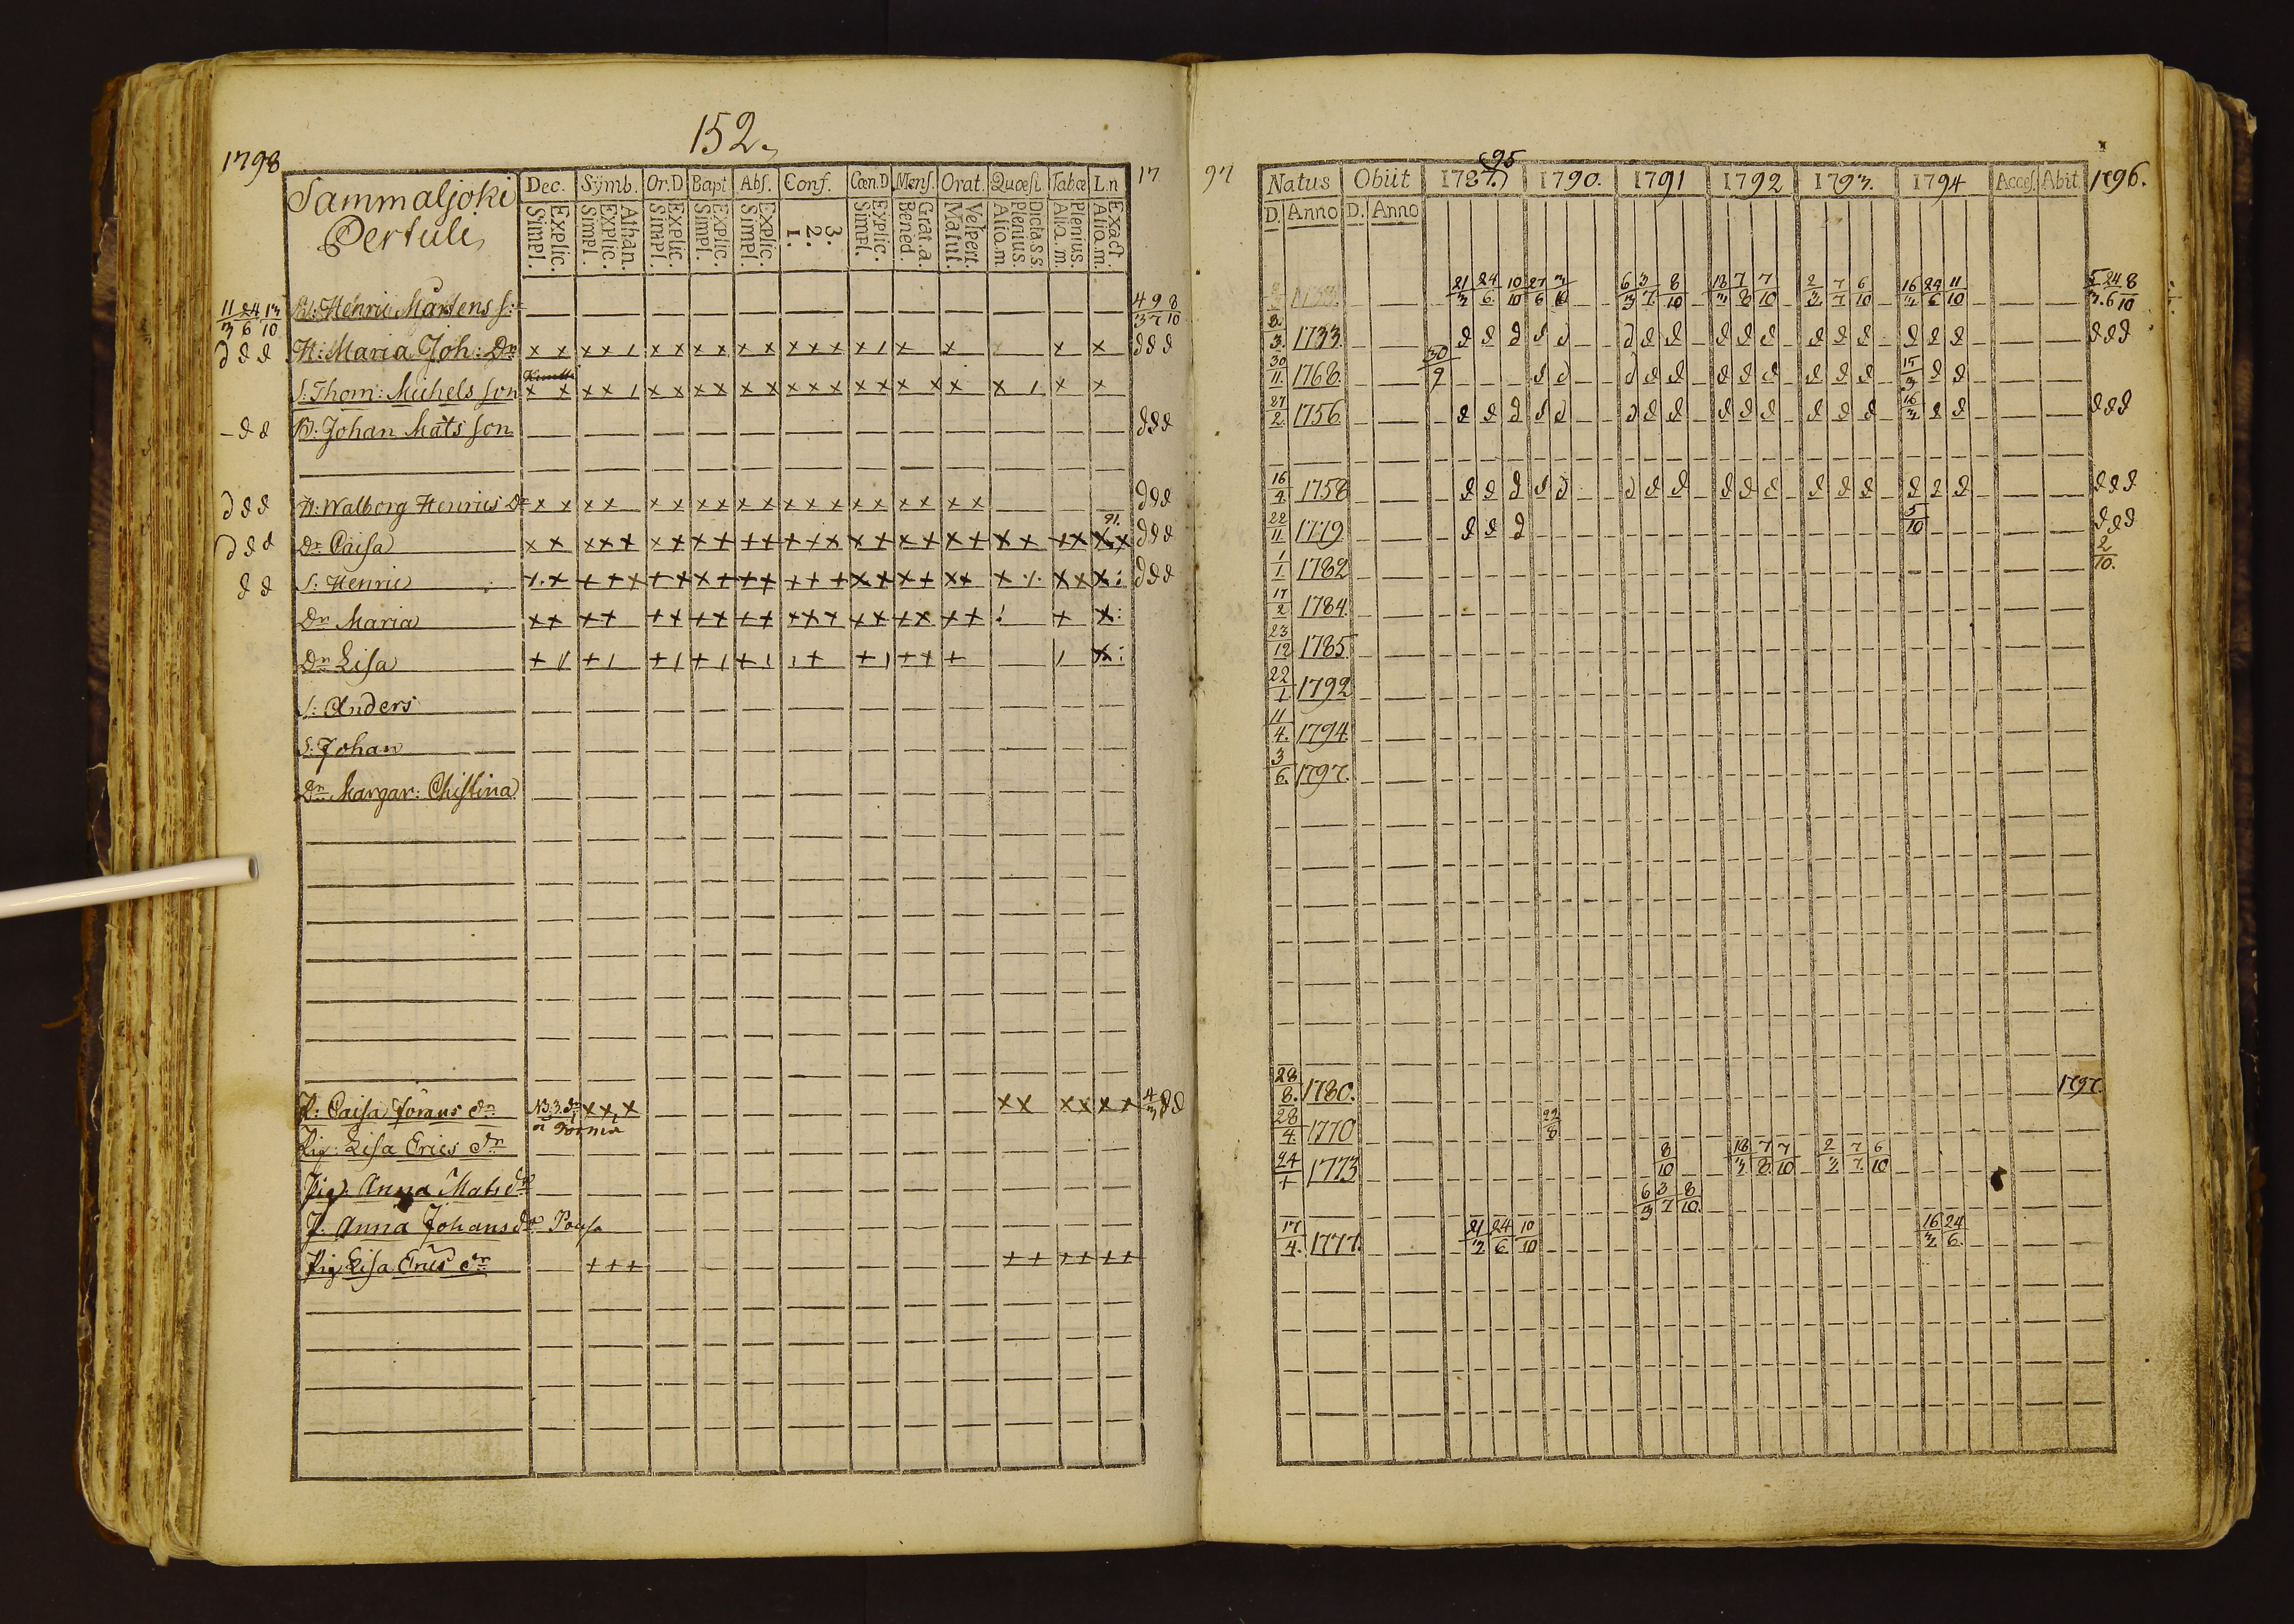 152.
1798
Sammaljoki
Pertuli
Dec. Symb. Or.D Bapt Abs. Conf. Cœn.D Mens. Orat. Quæst. Tabæ L.n
Simpl. Explic. Simpl. Explic. Athan. Simpl. Explic. Simpl. Explic. Simpl. Explic. 1. 2. 3. Simpl. Explic. Bened. Grat.a. Matut. Vespert. Aliq.m. Plenius. Dicta.s.s. Aliq.m. Plenius. Aliq.m. Exact.
17
11/3 24/6 13/10 Bl: Henric Mårtens S: 4/3 9/7 8/10
d d d H: Maria Joh: Dr x x x x 1 x x x x x x x x x x 1 x x x x d d d
S: Thom: Michels Son x x x x 1 x x x x x x x x x x x x x x x 1 x x
– d d B: Johan Mats Son d d d
d d d H: Walborg Henrics Dr x x x x x x x x x x x x x x x x x x x d d d
91.
d d d Dr Caisa x x x x + x + + + + + + x x x + x + x + x + + x x x d d d
d d S: Henric d d d
Dr Maria
Dr Lisa
S: Anders
S: Johan
Dr Margar: Christina
P: Caisa Jörans dr NB. 3. x x x x x x x x x 4/3 d d
Pig: Lisa Erics dr
Pig: Anna Mats dr
P: Anna Johans dr
Pig Lisa Erics dr + + + + + + + + +
97
95
Natus Obiit 1787. 1790. 1791 1792 1793. 1794 Acces. Abit. 1796.
D. Anno D. Anno
1733 21/3 24/6 10/10 27/6 3/10 6/3 3/7 8/10 18/3 7/8 7/10 2/3 7/7 6/10 16/3 24/6 11/10 5/3 24/6 8/10
1733. d d d d d d d d d d d d d d d d d d d d
30/11 1768. 30/9 d d d d d d d d d d d 15/3 d d
27/2 1756 d d d d d d d d d d d d d d 16/3 d d d d d
16/4 1758 d d d d d d d d d d d d d d d d d d d d
22/11 1779 d d d 5/10 d d d
1/1 1782 2/10.
17/2 1784.
23/12 1785.
22/1 1792
11/4. 1794
3/6. 1797.
28/8. 1780. 1797.
28/4. 1770 22/8
24/1 1773 8/10 18/3 7/8 7/10 2/3 7/7 6/10
6/3 3/7 8/10.
17/4. 1777. 21/3 24/6 10/10 16/3 24/6